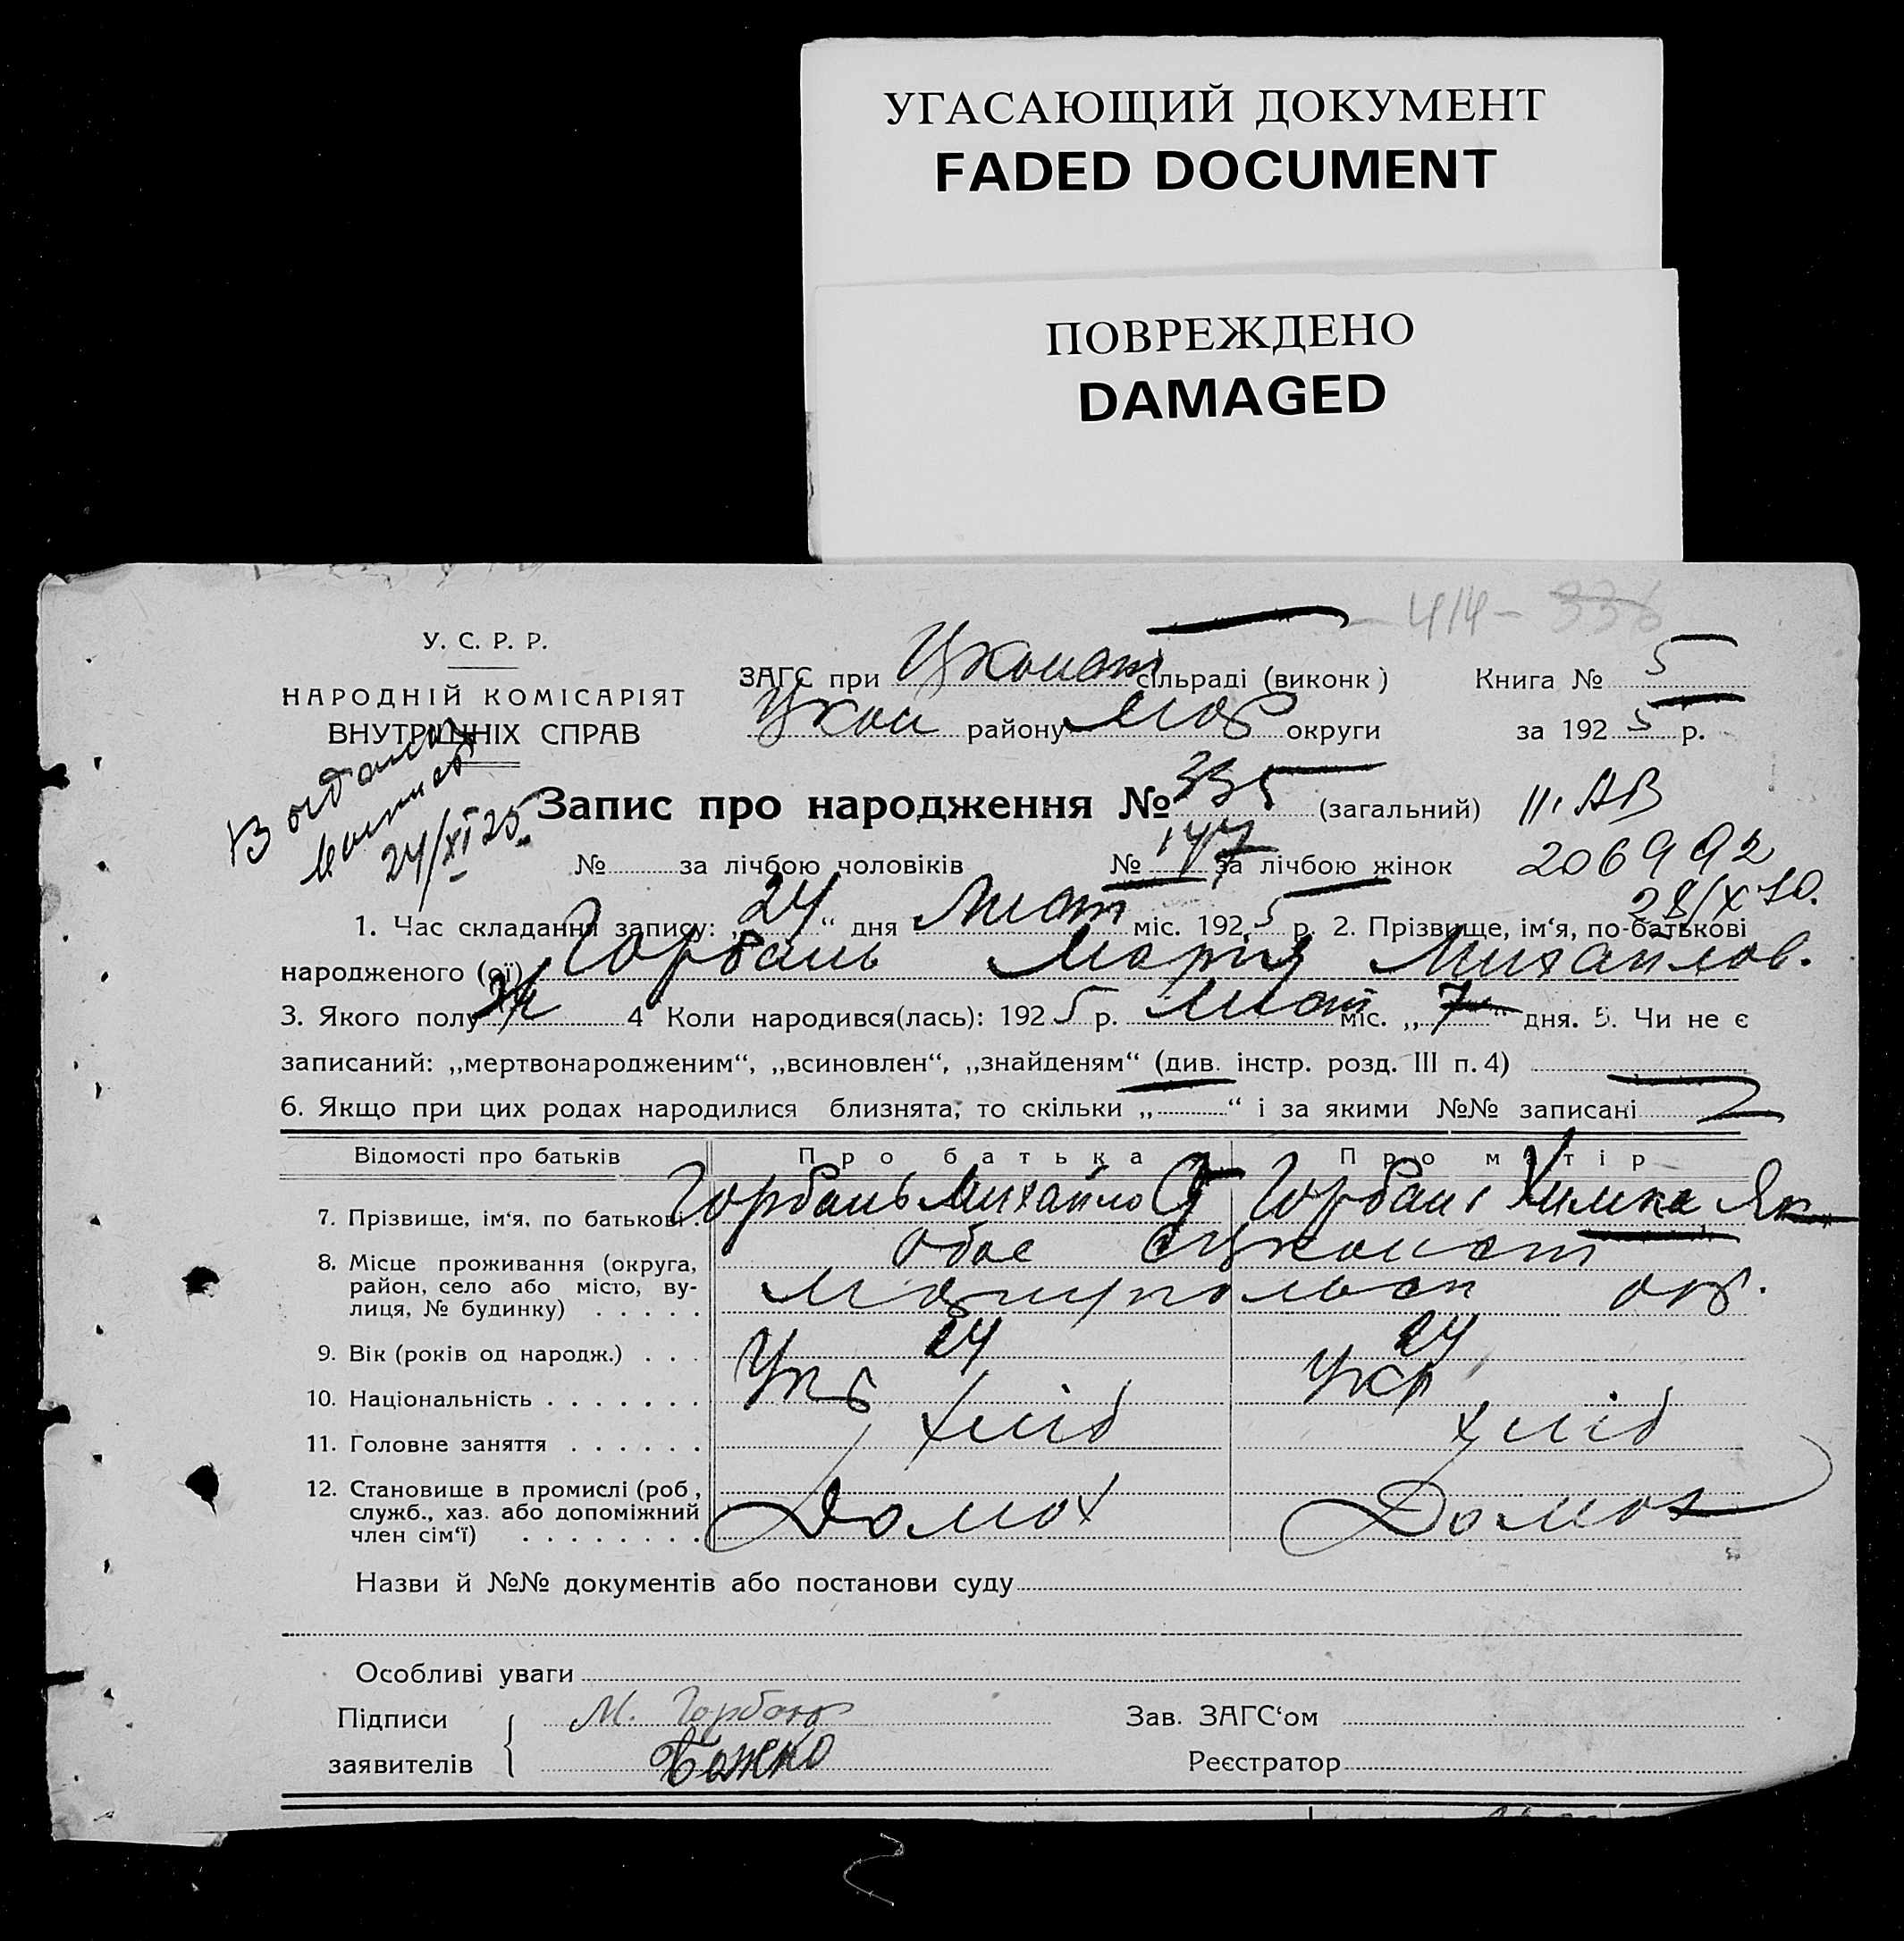 УГАСАЮЩИЙ ДОКУМЕНТ
FADED DOCUMENT
ПОВРЕЖДЕНО
DAMAGED
414 - 336
У. С. Р. Р.
НАРОДНІЙ КОМІСАРІЯТ
ВНУТРІШНІХ СПРАВ
ЗАГС при сільраді (виконк) Книга № 5
району Мар округи за 1925 р.
24/XI 25
Запис про народження № 335 (загальний) II. АВ
№ за лічбою чоловіків № 147 за лічбою жінок 206992
28/X 50.
1. Час складання запису: „24“ дня Лист міс. 1925 р. 2. Прізвище, ім‘я, по-батькові
народженого (ої) Горбань Мария Михайлов.
3. Якого полу ж 4 Коли народився(лась): 1925 р. Лист міс. „7“ дня. 5. Чи не є
записаний: „мертвонародженим“, „всиновлен“, „знайденям“ (див. інстр. розд. III п. 4)
6. Якщо при цих родах народилися близнята, то скільки „—“ і за якими №№ записані
Відомості про батьків Про батька Про матір
7. Прізвище, ім‘я, по батькові . Горбань Михайло Горбань Химка Як
8. Місце проживання (округа, район, село або місто, вулиця, № будинку) . . . . . Обоє Мариупольск окр.
9. Вік (років од народж.) . . . 24 24
10. Національність . . . . . . . Укр Укр
11. Головне заняття . . . . . . хліб хліб
12. Становище в промислі (роб, служб., хаз. або допоміжний член сім‘ї) . . . . . . . . Домох Домох
Назви й №№ документів або постанови суду
Особливі уваги
Підписи М. Горбань Зав. ЗАГС‘ом
заявителів Божко Реєстратор